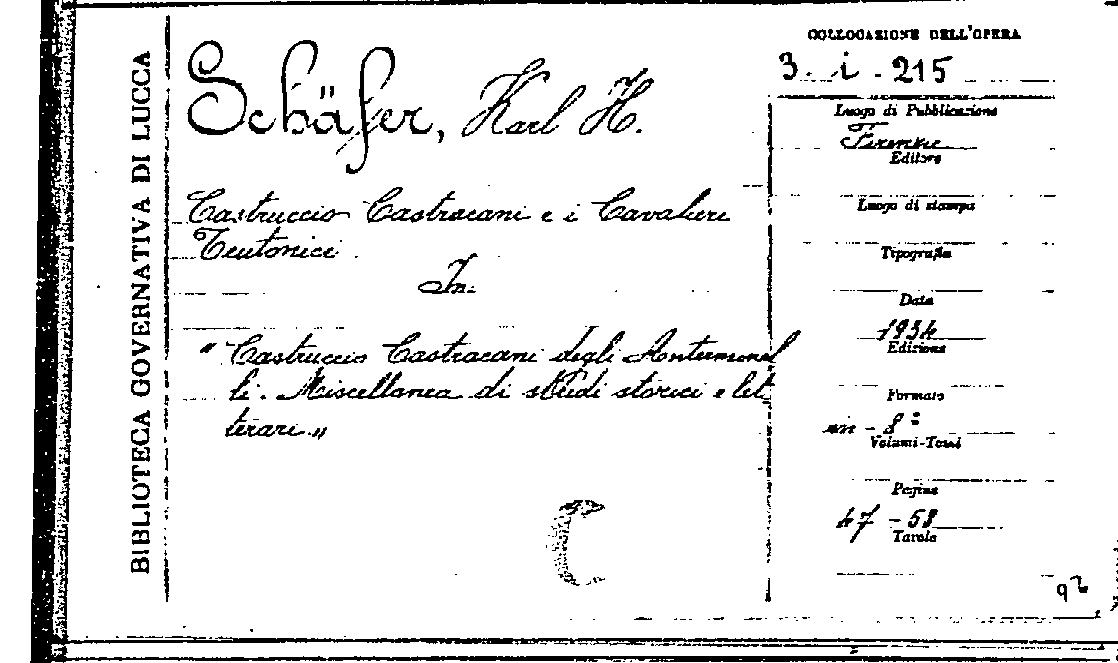 BIBLIOTECA GOVERNATIVA DI LUCCA
Schäfer, Karl H.
Castruccio Castracani e i Cavalieri
Teutonici
In.
"Castruccio Castracani degli Antelminel
li. Miscellanea di studi storici e let
terari"
COLLOCAZIONE DELL'OPERA
3. i. 215
Luogo di Pubblicazione
Firenze
Editore
Luogo di stampa
Tipografia
Data
1934
Edizione
Formato
in - 8°
Volumi-Tomi
Pagine
47 - 58
Tavole